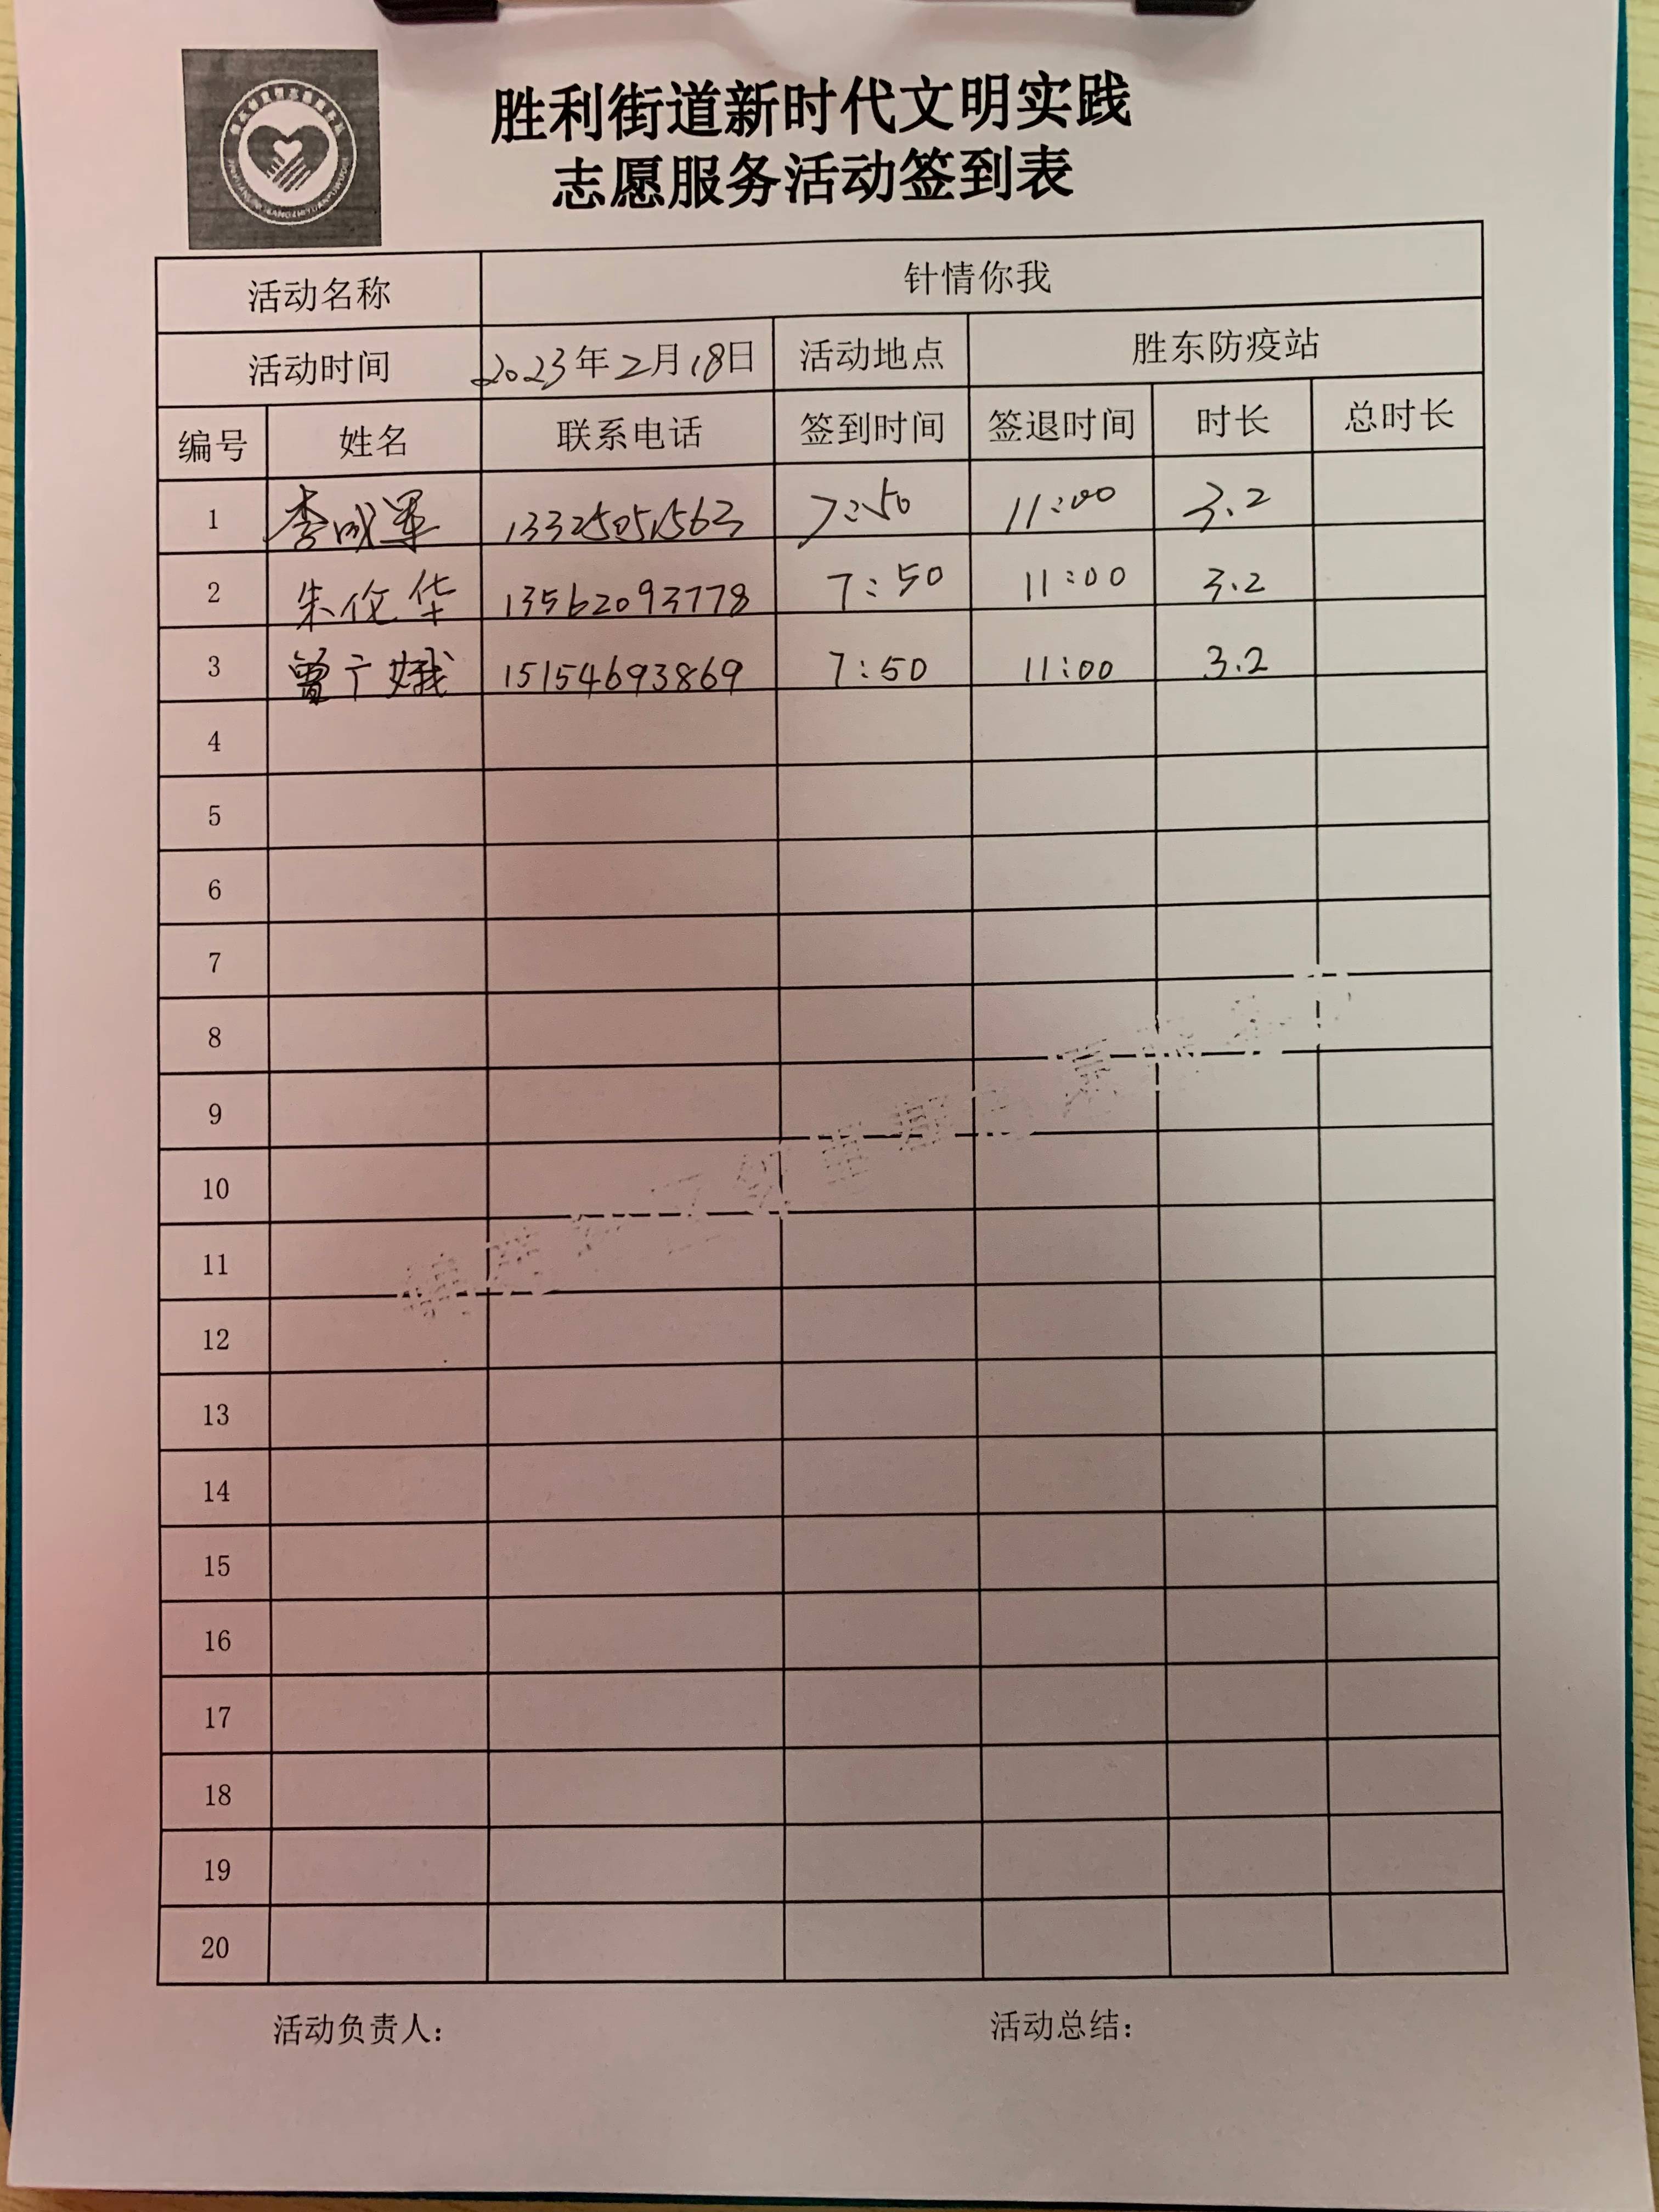 胜利街道新时代文明实践
志愿服务活动签到表
活动名称 针情你我
活动时间 2023年2月18日 活动地点 胜东防疫站
编号 姓名 联系电话 签到时间 签退时间 时长 总时长
1 李成军 13325051563 7:50 11:00 3.2
2 朱伦华 13562093778 7:50 11:00 3.2
3 曾广娥 15154693869 7:50 11:00 3.2
4
5
6
7
8
9
10
11
12
13
14
15
16
17
18
19
20
活动负责人: 活动总结: